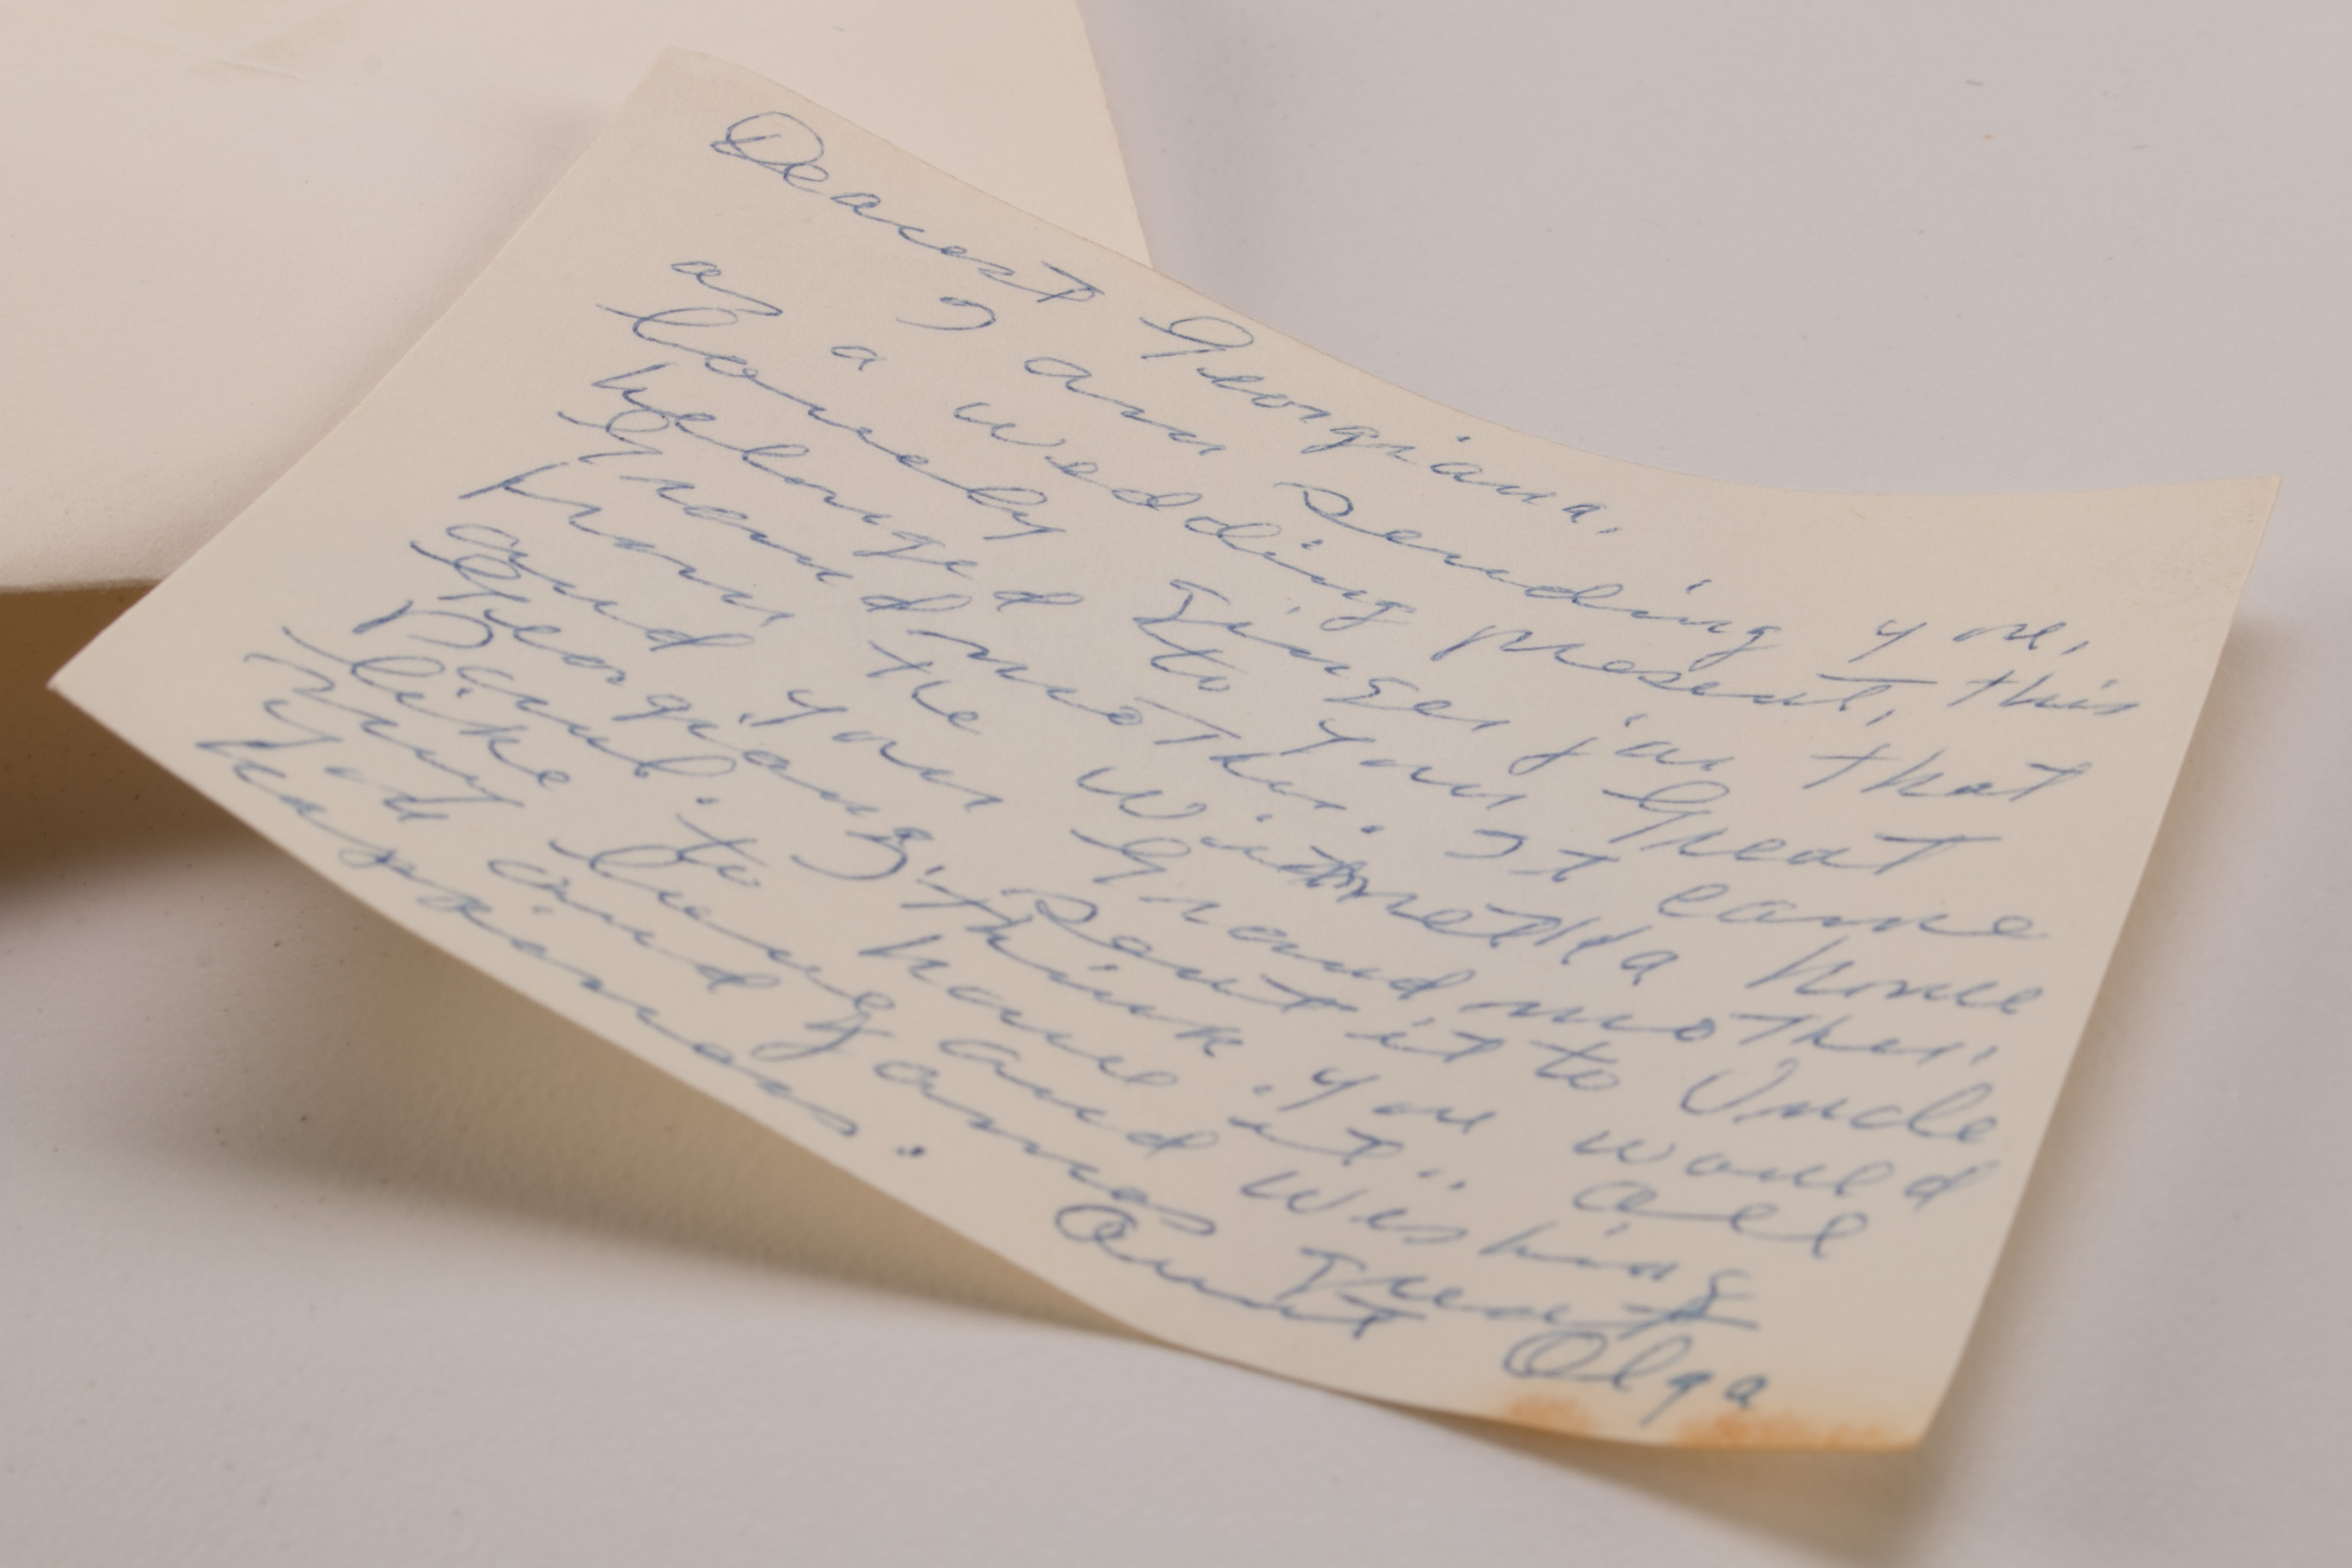 Dearest Georgiana,
I am sending you,
as a wedding present, this
lovely ginger jar that
belonged to your Great
Grandmother. It came
from the Winnetka home
and your Grandmother,
Georgiana B. sent it to Uncle
Paul. I think you would
like to have it.. All
my and wishing
and James great
happiness.
Aunt Olga